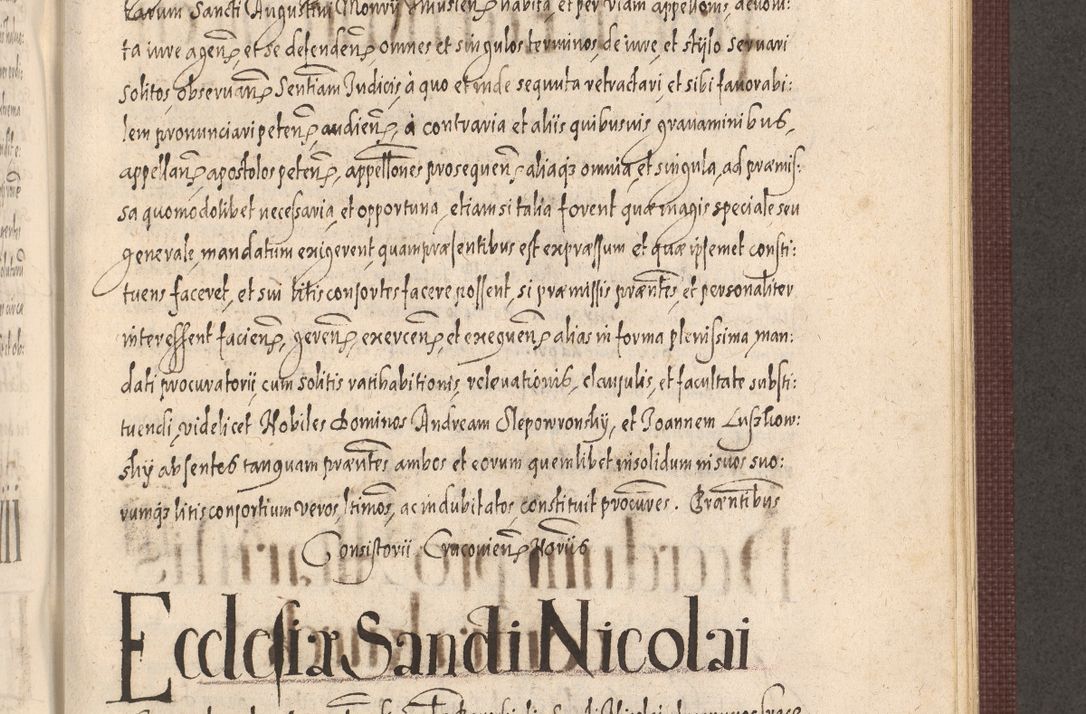 ta iure agen, et se defenden, omnes et singulos terminos, de iure, et stylo servari
solitos, observan, Sentiam Iudicis, à quo et inde sequuta retractari, et sibi favorabi:
lem pronunciari peten, audien, à contraria et aliis quibusuis gravaminibus,
appellan, apostolos peten, appellones prosequen, aliaq3 omnia, et singula, ad præmis:
sa quomodolibet necessaria, et opportuna, etiamsi talia forent quæ magis speciale seu
generale, mandatum exigerent, quam præsentibus est expræssum et quæ ipsemet consti:
tuens faceret, et sui litis consortes facere possent, si præmissis præntes, et personaliter
interessent facien, geren, exercen, et exequen, alias in forma plenissima man:
dati procuratorij, cum solitis ratihabitionis, relevationis, clausulis, et facultate substi:
tuendi, videlicet Nobiles Dominos Andream Slepowronsky, et Joannem Luszkow:
sky absentes tanquam præntes ambos et eorum quemlibet insolidum in suos suo:
rumq3 litis consortium veros, ltimos, ac indubitatos, constituit procures. Præntibus
Consistorii Cracovien Noriis
Ecclesia Sancti Nicolai